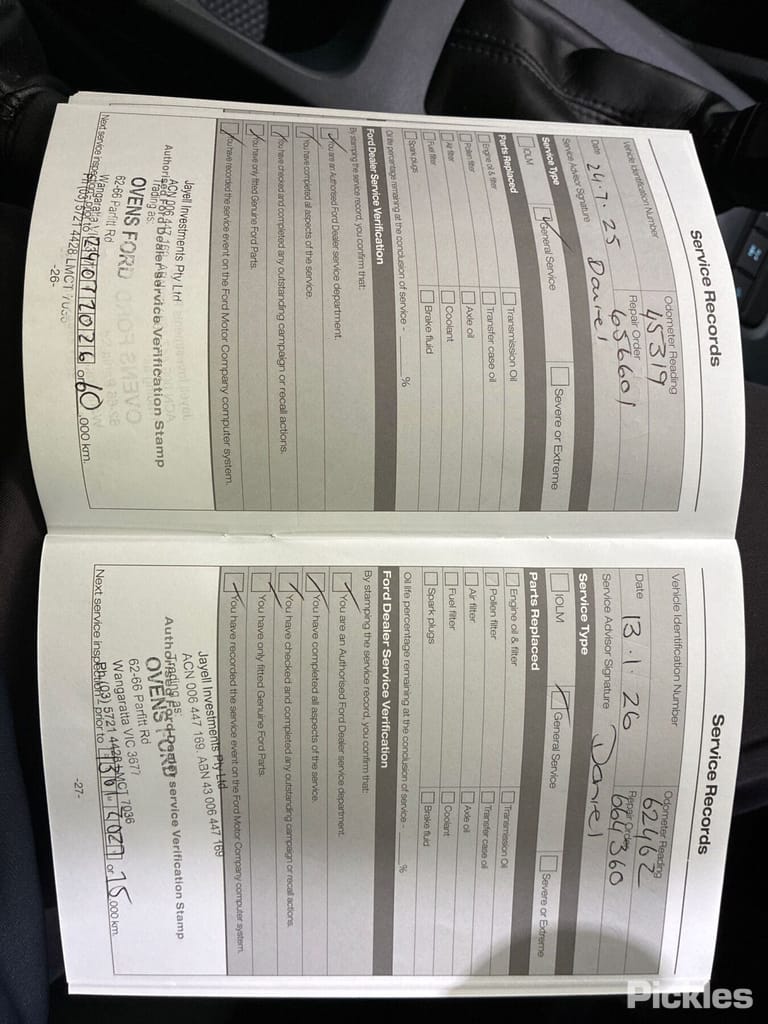 Service Records
Vehicle Identification Number
Odometer Reading
45319
Date 24.7.25
Repair Order
656601
Service Advisor Signature Daniel
Service Type
IOLM
General Service
Severe or Extreme
Parts Replaced
Engine oil & filter
Transmission Oil
Pollen filter
Transfer case oil
Air filter
Axle oil
Fuel filter
Coolant
Spark plugs
Brake fluid
Oil life percentage remaining at the conclusion of service - %
Ford Dealer Service Verification
By stamping the service record, you confirm that:
You are an Authorised Ford Dealer service department.
You have completed all aspects of the service.
You have checked and completed any outstanding campaign or recall actions.
You have only fitted Genuine Ford Parts.
You have recorded the service event on the Ford Motor Company computer system.
Jayell Investments Pty Ltd
ACN 006 447 169
Authorised Ford Dealer service Verification Stamp
Trading as:
OVENS FORD
62-66 Parfitt Rd
Wangaratta VIC
Ph (03) 5721 4428 LMCT 7036
Next service inspection prior to 24072026 or 60 ,000 km.
-26-
Service Records
Vehicle Identification Number
Odometer Reading
62462
Date 13.1.26
Repair Order
664360
Service Advisor Signature Daniel
Service Type
IOLM
General Service
Severe or Extreme
Parts Replaced
Engine oil & filter
Transmission Oil
Pollen filter
Transfer case oil
Air filter
Axle oil
Fuel filter
Coolant
Spark plugs
Brake fluid
Oil life percentage remaining at the conclusion of service - %
Ford Dealer Service Verification
By stamping the service record, you confirm that:
You are an Authorised Ford Dealer service department.
You have completed all aspects of the service.
You have checked and completed any outstanding campaign or recall actions.
You have only fitted Genuine Ford Parts.
You have recorded the service event on the Ford Motor Company computer system.
Jayell Investments Pty Ltd
ACN 006 447 169. ABN 43 006 447 169
Authorised Ford Dealer service Verification Stamp
Trading as:
OVENS FORD
62-66 Parfitt Rd
Wangaratta VIC 3677
Ph (03) 5721 4428 LMCT 7036
Next service inspection prior to or 75 ,000 km.
-27-
Pickles